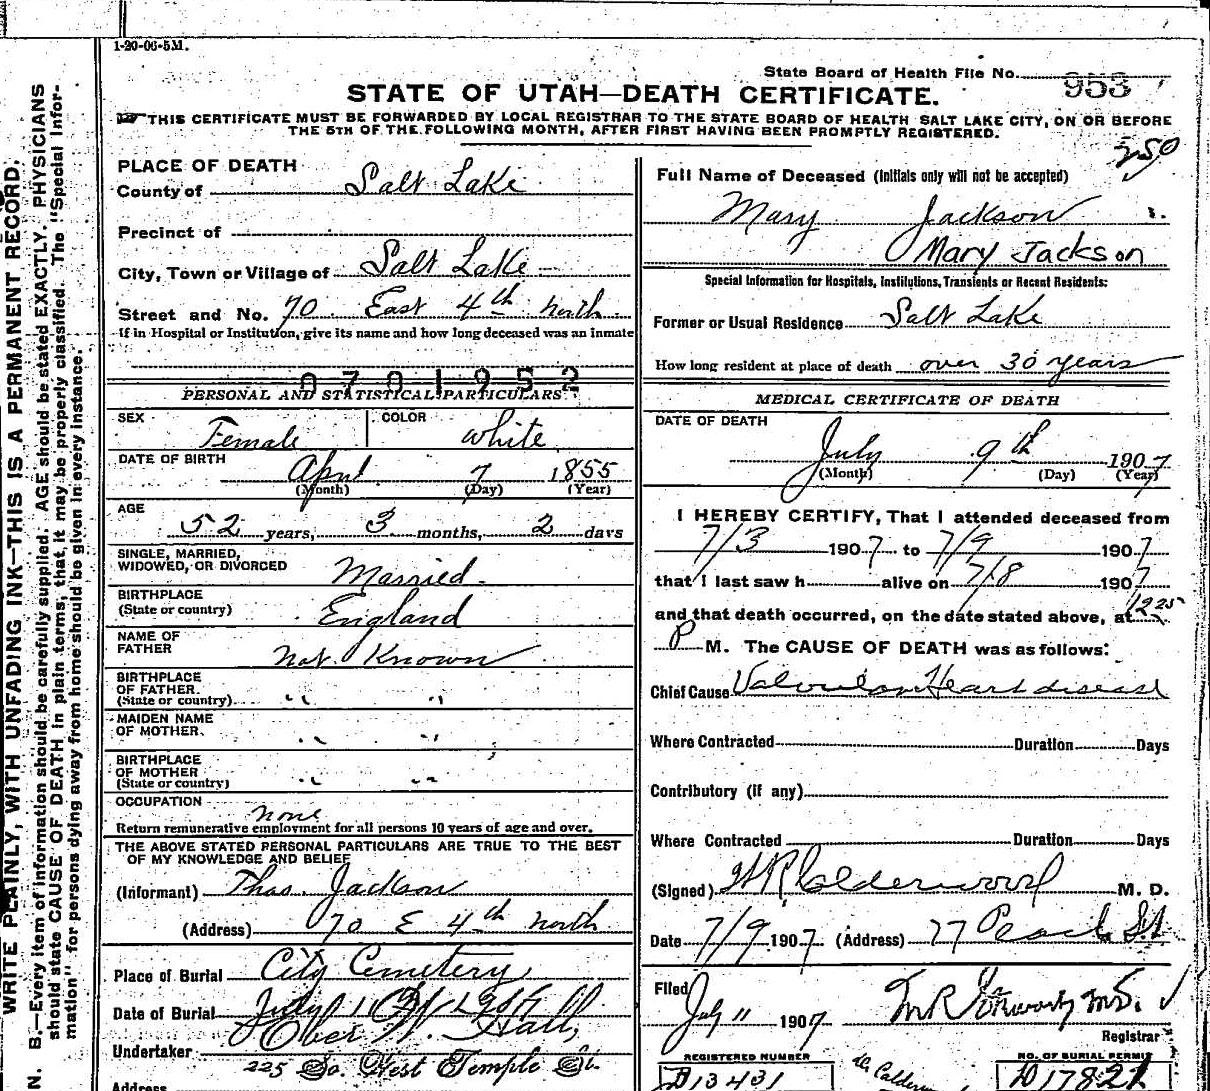 1-20-06-5M.
State Board of Health File No. 953
STATE OF UTAH—DEATH CERTIFICATE.
THIS CERTIFICATE MUST BE FORWARDED BY LOCAL REGISTRAR TO THE STATE BOARD OF HEALTH SALT LAKE CITY, ON OR BEFORE
THE 5TH OF THE FOLLOWING MONTH, AFTER FIRST HAVING BEEN PROMPTLY REGISTERED.
WRITE PLAINLY, WITH UNFADING INK—THIS IS A PERMANENT RECORD.
N. B.—Every item of information should be carefully supplied. AGE should be stated EXACTLY. PHYSICIANS
should state CAUSE OF DEATH in plain terms, that it may be properly classified. The "Special Infor-
mation" for persons dying away from home should be given in every instance.
PLACE OF DEATH
County of Salt Lake
Precinct of
City, Town or Village of Salt Lake
Street and No. 70 East 4th north
If in Hospital or Institution, give its name and how long deceased was an inmate
0701952
PERSONAL AND STATISTICAL PARTICULARS
SEX Female COLOR white
DATE OF BIRTH April 7 1855
(Month) (Day) (Year)
AGE
52 years, 3 months, 2 days
SINGLE, MARRIED,
WIDOWED, OR DIVORCED Married
BIRTHPLACE
(State or country) England
NAME OF
FATHER Not Known
BIRTHPLACE
OF FATHER.
(State or country) " "
MAIDEN NAME
OF MOTHER. " "
BIRTHPLACE
OF MOTHER
(State or country) " "
OCCUPATION none
Return remunerative employment for all persons 10 years of age and over.
THE ABOVE STATED PERSONAL PARTICULARS ARE TRUE TO THE BEST
OF MY KNOWLEDGE AND BELIEF
(Informant) Thos. Jackson
(Address) 70 E 4th north
Place of Burial City Cemetery
Date of Burial July
Undertaker Ober W. Hall,
225 So. West Temple St.
Address
250
Full Name of Deceased (Initials only will not be accepted)
Mary Jackson
Mary Jackson
Special Information for Hospitals, Institutions, Transients or Recent Residents:
Former or Usual Residence Salt Lake
How long resident at place of death over 30 years
MEDICAL CERTIFICATE OF DEATH
DATE OF DEATH
July 9th 1907
(Month) (Day) (Year)
I HEREBY CERTIFY, That I attended deceased from
7/3 1907 to 7/9 1907
that I last saw h alive on 7/8 1907
and that death occurred, on the date stated above, at 12 25
P M. The CAUSE OF DEATH was as follows:
Chief Cause Valvular Heart disease
Where Contracted Duration Days
Contributory (if any)
Where Contracted Duration Days
(Signed) Calderwood M. D.
Date 7/9 1907 (Address) 77 St
Filed
July 11 1907
Registrar
REGISTERED NUMBER NO. OF BURIAL PERMIT
D13431 D17821